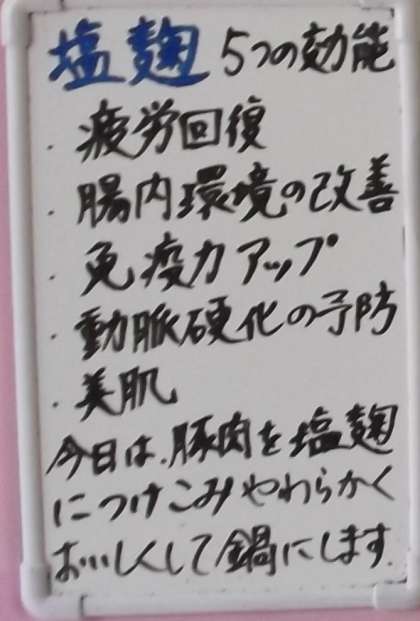 塩麹 5つの効能
・疲労回復
・腸内環境の改善
・免疫力アップ
・動脈硬化の予防
・美肌
今日は、豚肉を塩麹
につけこみやわらかく
おいしくして鍋にします。